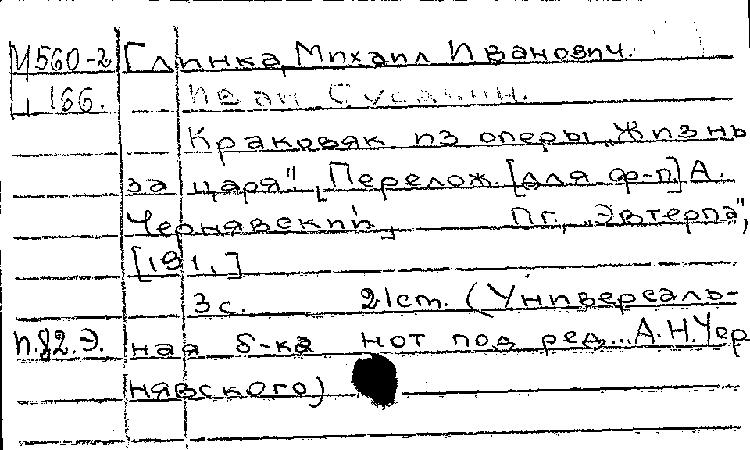 М560-2 Глинка, Михаил Иванович.
166. Иван Сусанин.
Краковяк из оперы „Жизнь
за царя". Перелож. [для ф-п.] А.
Чернявский. Пг., „Эвтерпа",
[191.]
3 с. 21 ст. (Универсаль-
п.82.Э. ная б-ка нот под ред... А.Н.Чер
нявского)